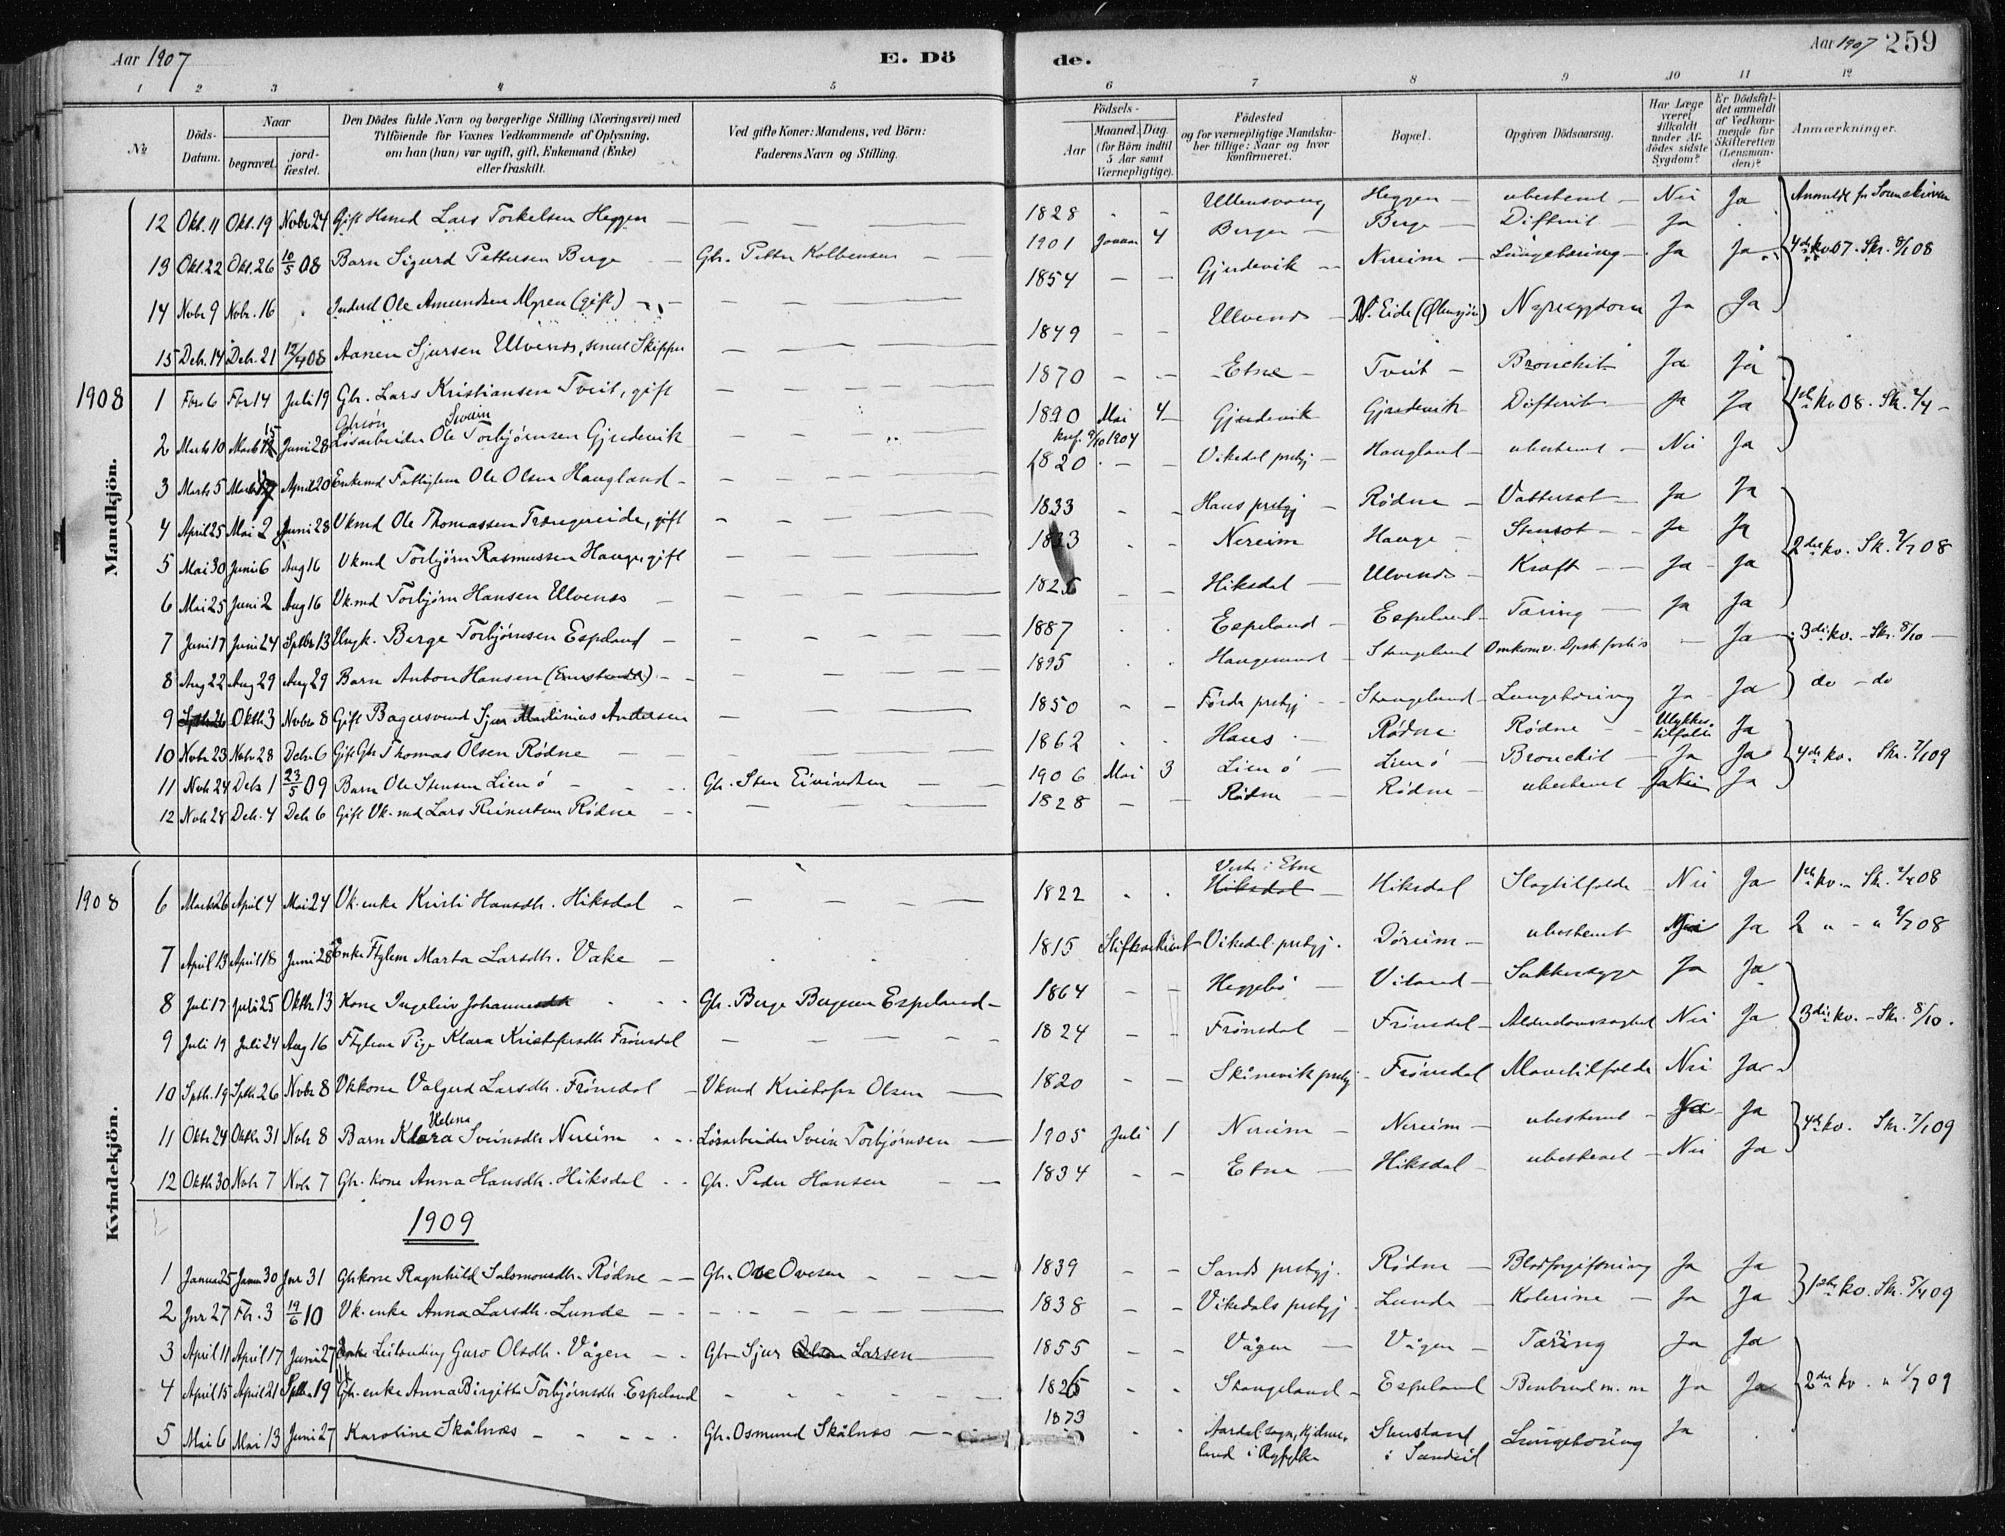 Aar 1907 E. Dö
de. Aar 1907 259
1 2 3 4 5 6 7 8 9 10 11 12
№ Döds-Datum. Naar begravet. jord-fæstet. Den Dödes fulde Navn og borgerlige Stilling (Næringsvei) med Tilföiende for Voxnes Vedkommende af Oplysning, om han (hun) var ugift, gift, Enkemand (Enke) eller fraskilt. Ved gifte Koner: Mandens, ved Börn: Faderens Navn og Stilling. Födsels- Aar Maaned. Dag (for Börn indtil 5 Aar samt Værnepligtige). Födested og for værnepligtige Mandskaber tillige: Naar og hvor konfirmeret. Bopæl. Opgiven Dödsaarsag. Har Læge været tilkaldt under Afdödes sidste Sygdom? Er Dödsfaldet anmeldt af Vedkommende for Skifteretten (Lensmanden)? Anmærkninger.
Mandkjön.
12 Okt. 11 Okt. 19 Novbr 24 Gift Lars Torkelsen Heggen — 1828 Ullensvang Heggen ubestemt Nei Ja
13 Okt. 22 Okt. 26 10/5 08 Barn Sigurd Pettersen Berge Gbr. Petter Kolbensen 1901 Januar 4 Bergen Berge Difterit Ja
14 Nobr 9 Nobr. 16 Inderst Ole Amundsen Myren (gift) 1854 Gjerdevik Nereim Lungebetændelse Ja Ja 4de kv 07. Skr. 8/1 08
15 Deb. 14 Deb. 21 12/4 08 Aanen Sjursen Ulvenes, Skipper 1849 Ulvenes N. Eide (Ølensjøen) Nyresygdom Ja Ja
1908
1 Fbr. 6 Fbr 14 Juli 19 Gbr. Lars Kristiansen Tveit, gift 1870 Etne Tveit Bronchit Ja Ja
2 Marts 10 Marts 15 Juni 28 Løsarbeider Ole Svein Torbjørnsen Gjerdevik 1890 Mai 4 Gjerdevik Gjerdevik Difterit Ja Ja 1ste kv 08. Skr. 2/4
knf. 2/10 1904
3 Marts 5 Marts April 20 Enkemd Fattiglem Ole Olsen Haugland 1820 Vikedal prstgj Haugland ubestemt Nei Ja
4 April 25 Mai 2 Juni 28 Vkmd Ole Thomassen Trængereide, gift 1833 Haus prstgj Rødne Vattersot Ja Ja
5 Mai 30 Juni 6 Aug 16 Vkmd Torbjørn Rasmussen Hauge, gift 1833 Nereim Hauge Stensot Ja Ja 2det kv. Skr. 2/7 08
6 Mai 25 Juni 2 Aug 16 Vk.md Torbjørn Hansen Ulvenes 1825 Hiksdal Ulvenes Kræft Ja Ja
7 Juni 17 Juni 24 Sptbr 13 Ungk. Berge Torbjørnsen Espeland 1887 Espeland Espeland Tæring Ja Ja
8 Aug 22 Aug 29 Aug 29 Barn Anton Hansen 1895 Haugesund Stangeland Ja 3die kv. Skr. 8/10
9 Oktb 3 Novbr 8 Gift Bagersvend Sjur Martinius Andersen 1850 Førde prstgj Stangeland Lungebetændelse Ja Ja do — do
10 Nvbr 23 Nvbr 28 Debr 6 Gift Gbr Thomas Olsen Rødne 1862 Haus Rødne Rødne Ulykkestilfælde Ja
11 Nvb 24 Debr 1 23/5 09 Barn Ole Stensen Lienø Gbr. Sten Eivindsen 1906 Mai 3 Lienø Lienø Bronchit Ja Ja 4de kv. Skr. 7/1 09
12 Nvb 28 Deb. 4 Deb 6 Gift Vk.md Lars Reinertsen Rødne 1828 Rødne Rødne ubestemt Nei Ja
Kvindekjön.
1908
6 Marts 26 April 4 Mai 24 Vk.enke Kirsti Hansdtr. Hiksdal 1822 Hiksdal Hiksdal Slagtilfælde Nei Ja 1ste kv. Skr. 2/4 08
7 April 13 April 18 Juni 28 Enke Ftglem Marta Larsdtr. Vake 1815 Vikedal prstgj. Døreim ubestemt Nei Ja 2 " - " 2/7 08
8 Juli 17 Juli 25 Oktb. 13 Kone Ingeleiv Johannesdtr Gbr. Berge Bergesen Espeland 1864 Heggebø Viland Sukkersyge Ja Ja
9 Juli 19 Juli 24 Aug 16 Ftglem Pige Klara Kristofersdtr Frønsdal 1824 Frønsdal Frønsdal Alderdomssvaghed Nei Ja 3die kv. Skr. 8/10.
10 Sptb. 19 Sptb 26 Nvbr 8 Vkkone Valgerd Larsdtr. Frønsdal Vkmd Kristofer Olsen 1820 Skånevik prstgj Frønsdal Mavetilfælde Nei Ja
11 Oktr 24 Oktb 31 Nvb 8 Barn Klara Helena Sveinsdtr Nereim Løsarbeider Svein Torbjørnsen 1905 Juli 1 Nereim Nereim ubestemt Ja
12 Oktb 30 Nvb 7 Nvb 7 Gbr. kone Anna Hansdtr. Hiksdal Gbr. Peder Hansen 1834 Etne Hiksdal ubestemt Nei Ja 4de kv. Skr. 7/1 09
1909
1 Januar 25 Januar 30 Jnr 31 Gbkone Ragnhild Salomonsdtr. Rødne Gbr. Ove Ovesen 1839 Sands prstgj. Rødne Blodforgiftning Ja Ja
2 Jnr 27 Fbr. 3 19/6 10 Vk.enke Anna Larsdtr. Lunde 1838 Vikedals prstgj Lunde Kolerine Ja Ja 1ste kv. Skr. 5/4 09
3 April 11 April 17 Juni 27 Guro Olsdtr. Vågen Gbr Sjur Larsen 1855 Vågen Vågen Tæring Ja Ja
4 April 15 April 21 Sptbr 19 Gb. enke Anna Birgitte Torbjørnsdtr Espeland 1826 Stangeland Espeland Benbrud m. m Ja Ja 2det kv. " 1/7 09
5 Mai 6 Mai 13 Juni 27 Karoline Skålnæs Gbr. Osmund Skålnæs 1873 Aardal sogn, Hjelmeland i Ryfylke i Sandeid Lungebetændelse Ja